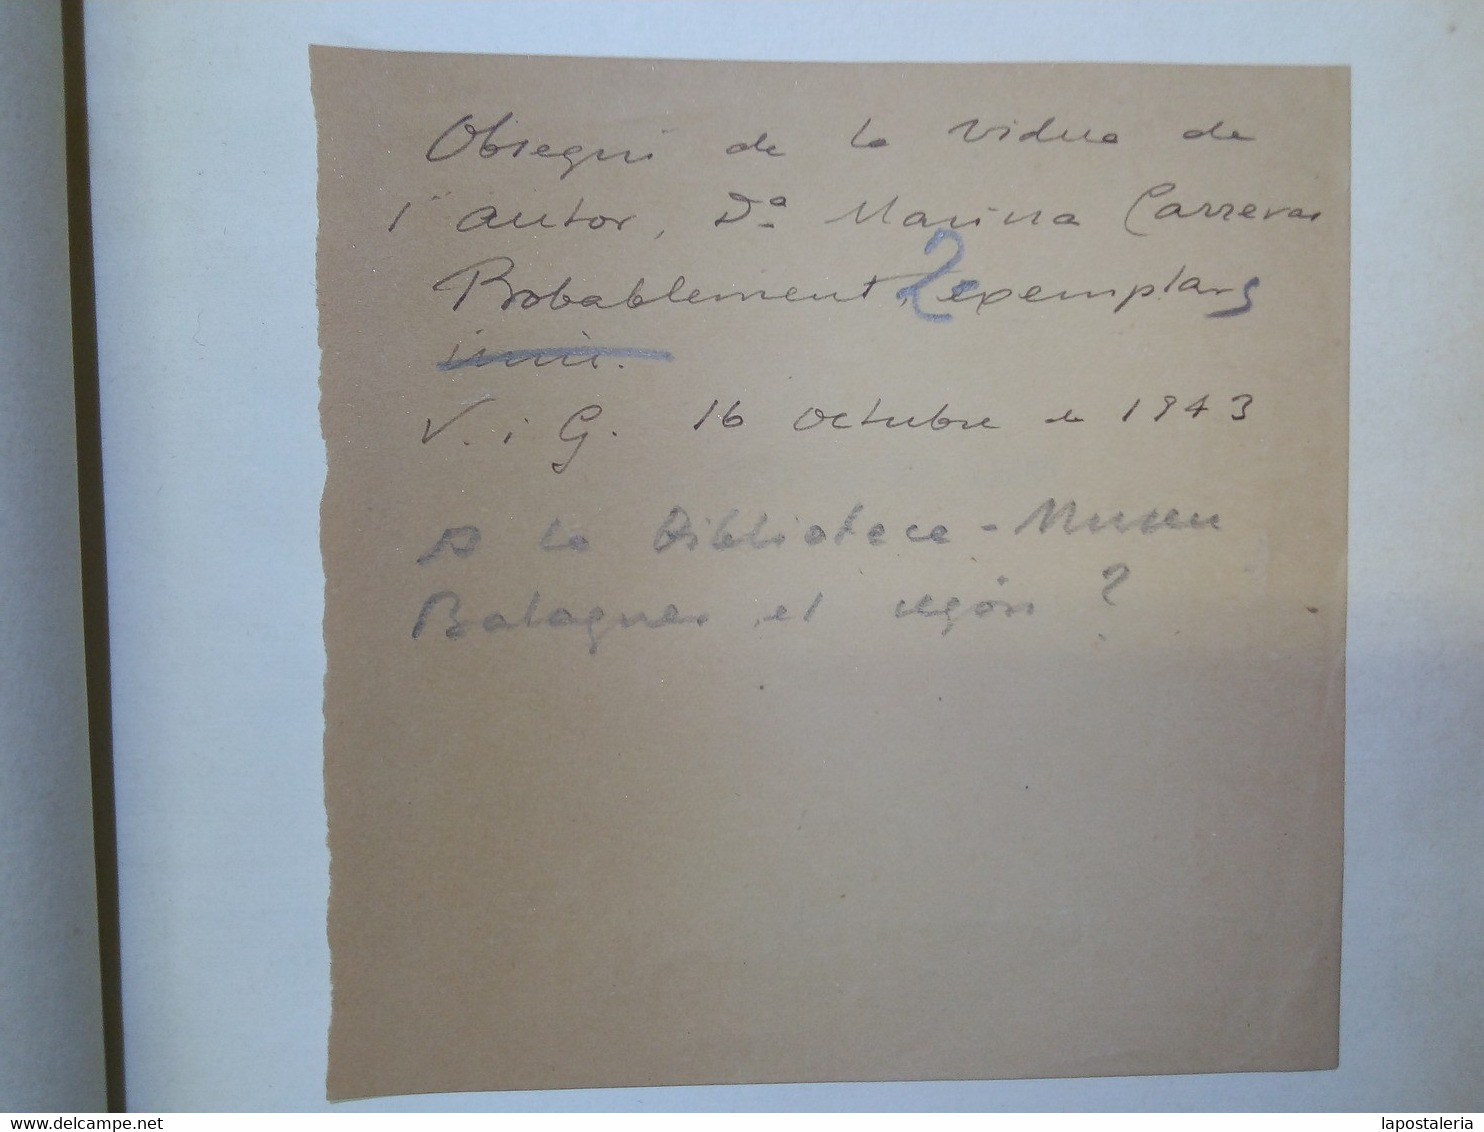 Obsequi de la vidua de
l'autor, Dª Marina Carreras
Probablement 2 exemplars
únic.
V. i G. 16 octubre de 1943
A la Biblioteca-Museu
Balaguer, el segón ?
delcampe.net
lapostaleria